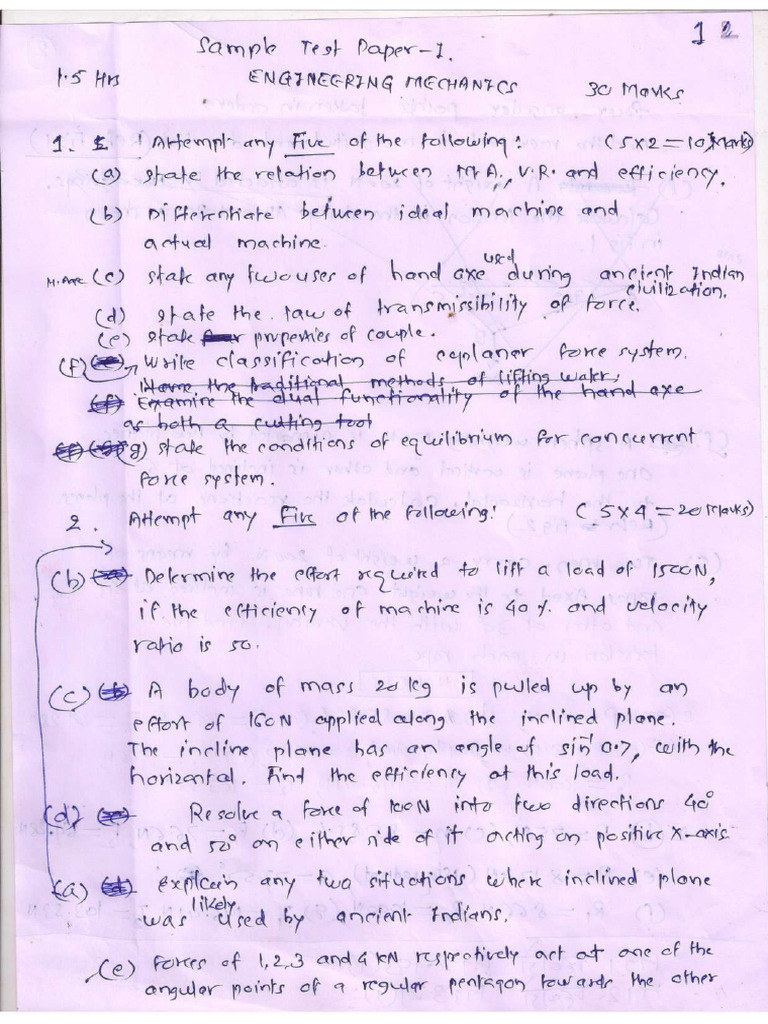 12
Sample Test Paper-I.
1.5 Hrs ENGINEERING MECHANICS 30 Marks
1. Attempt any Five of the following: (5x2=10 Marks)
(a) state the relation between M.A., V.R. and efficiency.
(b) Differentiate between ideal machine and
actual machine.
(c) state any two uses of hand axe used during ancient Indian
civilization.
(d) state the law of transmissibility of force.
(e) state properties of couple.
(f) Write classification of coplaner force system.
Name the traditional methods of lifting water;
(f) Examine the dual functionality of the hand axe
as both a cutting tool
(g) state the conditions of equilibrium for concurrent
force system.
2. Attempt any Five of the following: (5x4=20 Marks)
(b) Determine the effort required to lift a load of 1500N,
if the efficiency of machine is 40% and velocity
ratio is 50.
(c) A body of mass 20 kg is pulled up by an
effort of 160N applied along the inclined plane.
The incline plane has an angle of sin⁻¹ 0.7, with the
horizontal. Find the efficiency at this load.
(d) Resolve a force of 100N into two directions 40°
and 50° on either side of it acting on positive x-axis.
(a) Explain any two situations where inclined plane
was likely used by ancient Indians.
(e) Forces of 1,2,3 and 4 kN respectively act at one of the
angular points of a regular pentagon towards the other